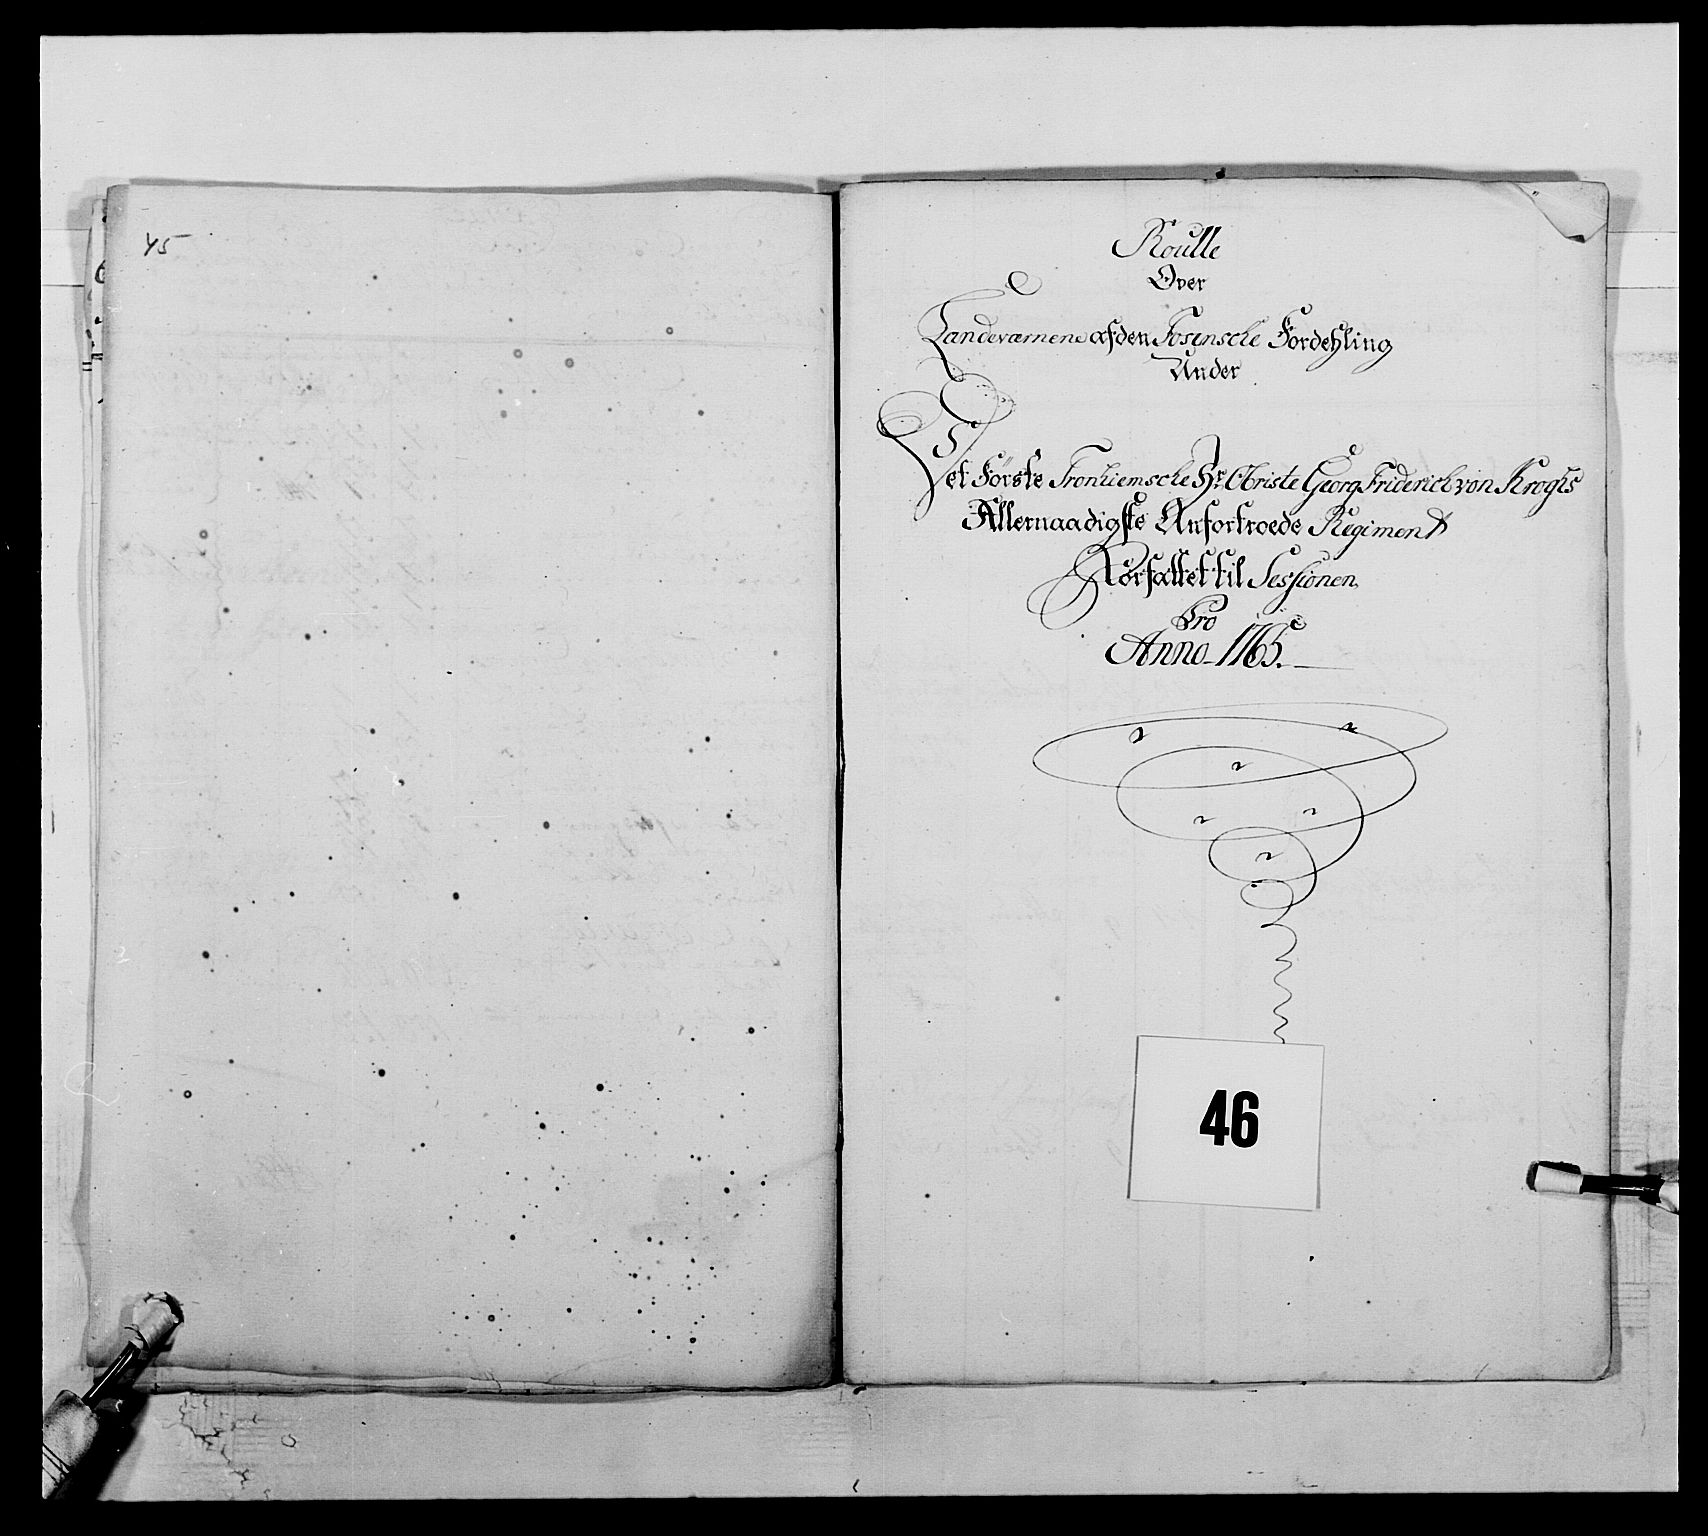 45
Roulle
Over
Landeværnene af den Fosensche Fordehling
Under
Det Første Tronhiemsche Hr. Obriste Georg Friderich von Kroghs
Allernaadigste Anfortroede Regiment
Forfattet til Sessionen
Pro
Anno 1765.
46